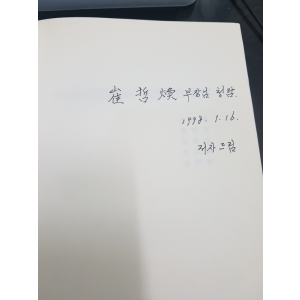 崔 哲 煥 부장님 청람
1998. 1. 16.
저자 드림